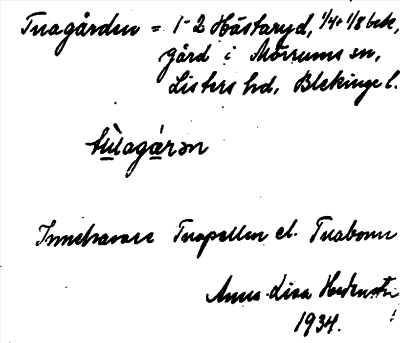 Tuagården = 1-2 Hástaryd, 1/4+1/8 bek,
gård i Mörrums sn,
Listers hd, Blekinge l.
tùagárən
Innehavare Tuapellen el. Tuabonn
Anna-Lisa
1934.